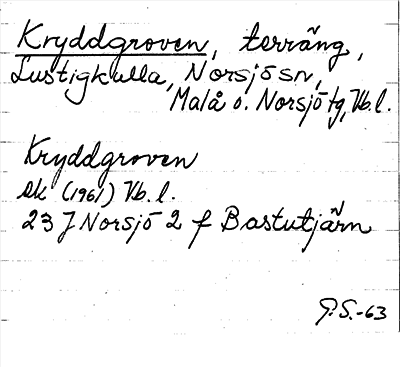 Kryddgroven, terräng,
Lustigkulla, Norsjö sn,
Malå o. Norsjö tg, Vb. l.
Kryddgroven
Ek (1961) Vb. l.
23 J Norsjö 2 f Bastutjärn
P.S.-63